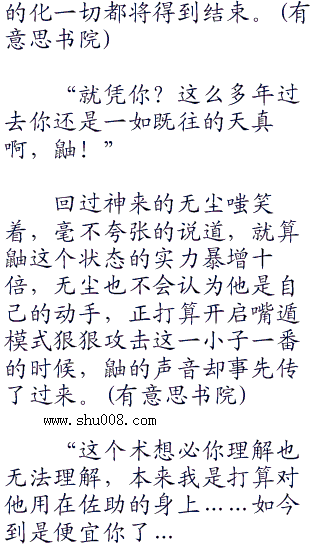 的化一切都将得到结束。(有
意思书院)
“就凭你？这么多年过
去你还是一如既往的天真
啊，鼬！”
回过神来的无尘嗤笑
着，毫不夸张的说道，就算
鼬这个状态的实力暴增十
倍，无尘也不会认为他是自
己的动手，正打算开启嘴遁
模式狠狠攻击这一小子一番
的时候，鼬的声音却事先传
了过来。(有意思书院)
www.shu008.com
“这个术想必你理解也
无法理解，本来我是打算对
他用在佐助的身上……如今
到是便宜你了...